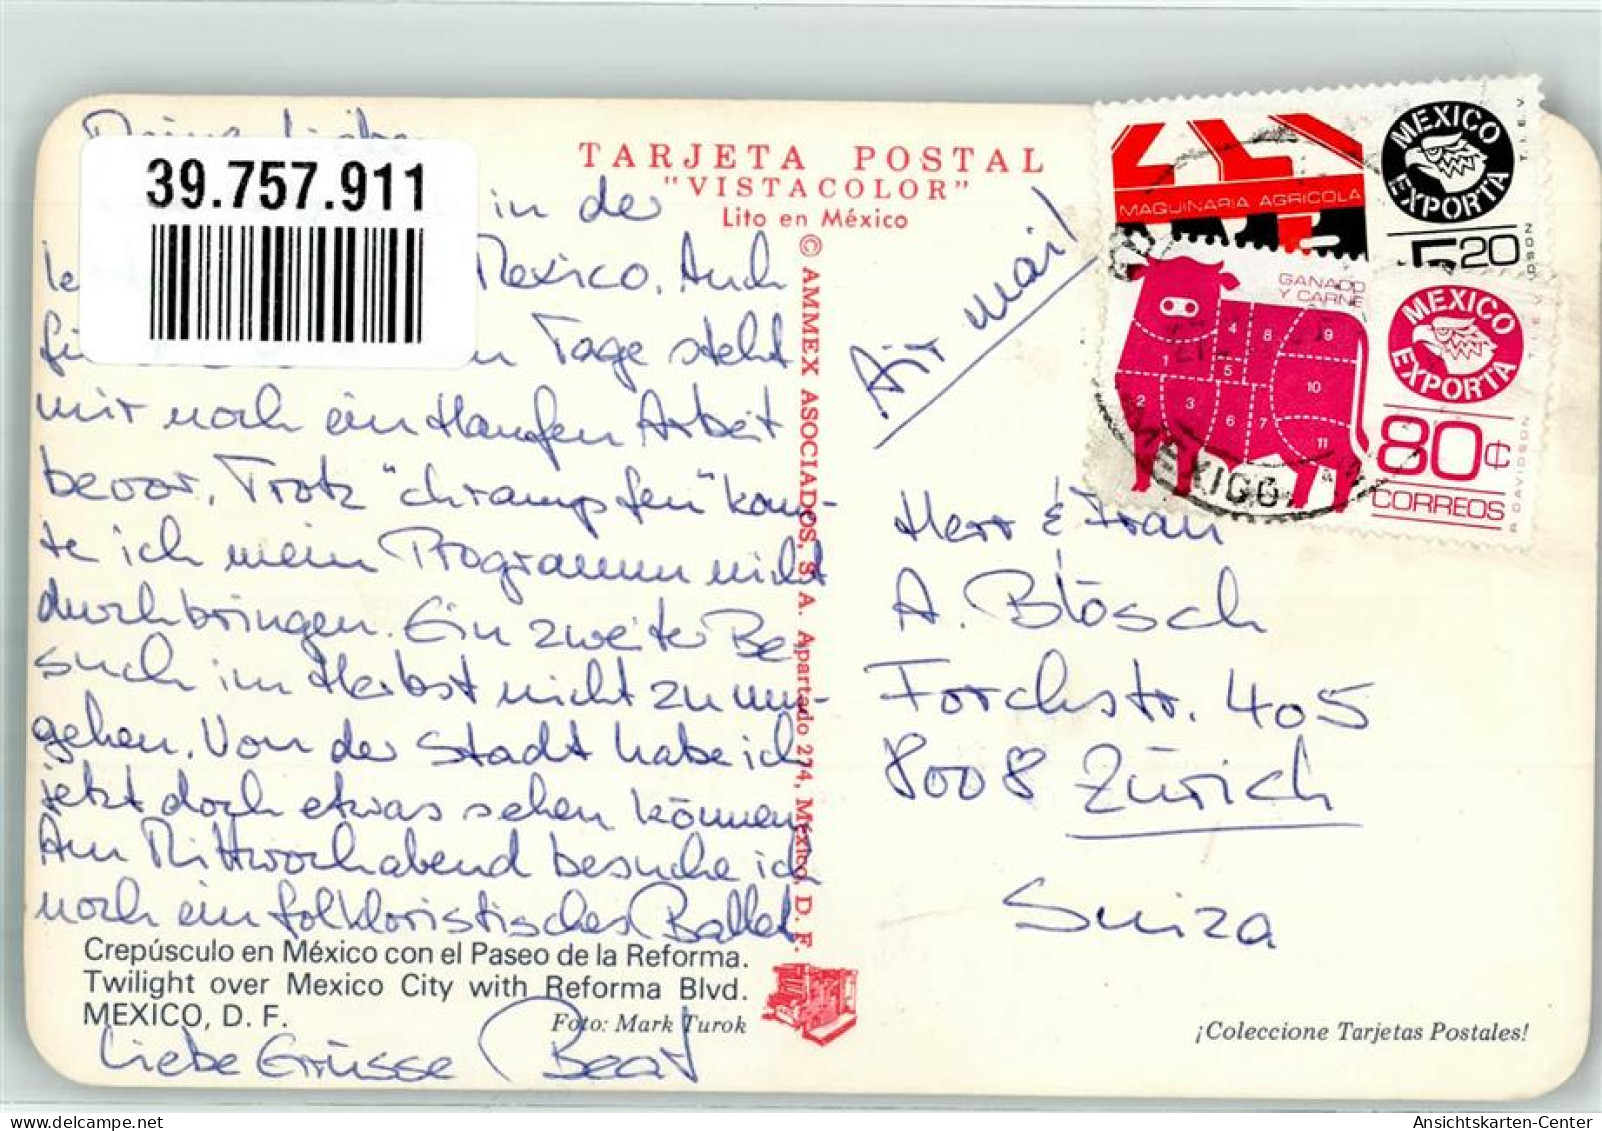 Meine Lieben
39.757.911
in der
Mexico. Auch
Tage steht
mir noch ein Haufen Arbeit
bevor. Trotz "chrampfen" konn-
te ich mein Programm nicht
durchbringen. Ein zweiter Be-
such im Herbst nicht zu um-
gehen. Von der Stadt habe ich
jetzt doch etwas sehen können.
Am Mittwochabend besuche ich
noch ein folkloristisches Ballet.
Crepúsculo en México con el Paseo de la Reforma.
Twilight over Mexico City with Reforma Blvd.
MEXICO, D. F.
Foto: Mark Turok
Liebe Grüsse Beat
TARJETA POSTAL
"VISTACOLOR"
Lito en México
© AMMEX ASOCIADOS, S. A. Apartado 274, México, D. F.
Air mail
MAQUINARIA AGRICOLA
MEXICO
EXPORTA
T.I.E.V.
5.20
GANADO
Y CARNE
1
2
3
4
5
6
7
8
9
10
11
MEXICO
EXPORTA
T.I.E.V.
80¢
CORREOS
R. DAVIDSON
MEXICO
Herr & Frau
A. Blösch
Forchstr. 405
8008 Zürich
Suiza
¡Coleccione Tarjetas Postales!
AnsichtsKarten-Center